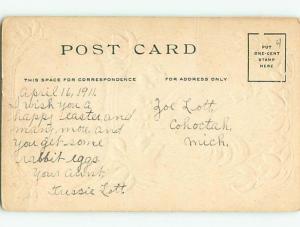 POST CARD
PUT
ONE-CENT
STAMP
HERE
THIS SPACE FOR CORRESPONDENCE
FOR ADDRESS ONLY
April 16, 1911.
I wish you a
happy Easter and
many more and
you get some
rabbit eggs
Your Aunt,
Tressie Lott
Zoe Lott
Cohoctah,
Mich.